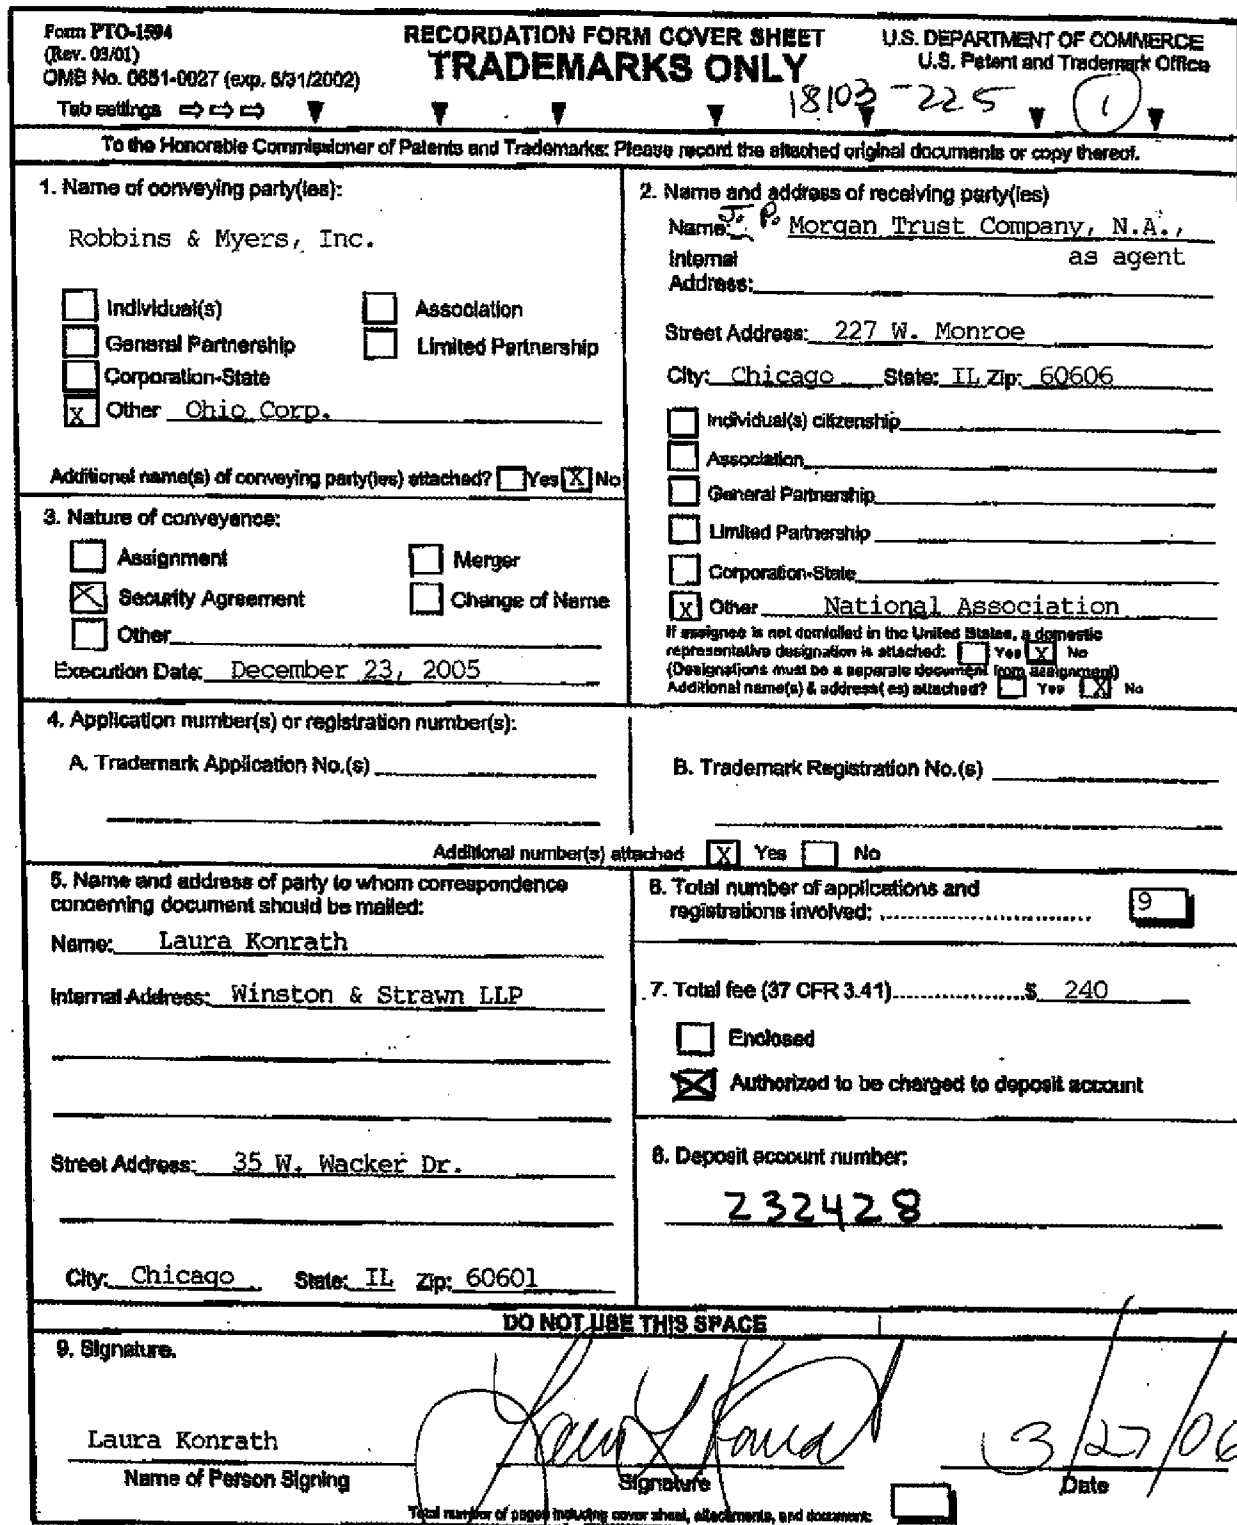 Form PTO-1594
(Rev. 03/01)
OMB No. 0651-0027 (exp. 5/31/2002)
Tab settings
RECORDATION FORM COVER SHEET
TRADEMARKS ONLY
U.S. DEPARTMENT OF COMMERCE
U.S. Patent and Trademark Office
18103-225 1
To the Honorable Commissioner of Patents and Trademarks: Please record the attached original documents or copy thereof.
1. Name of conveying party(ies):
Robbins & Myers, Inc.
Individual(s) Association
General Partnership Limited Partnership
Corporation-State
X Other Ohio Corp.
Additional name(s) of conveying party(ies) attached? Yes X No
2. Name and address of receiving party(ies)
Name: J. P. Morgan Trust Company, N.A.,
as agent
Internal
Address:
Street Address: 227 W. Monroe
City: Chicago State: IL Zip: 60606
Individual(s) citizenship
Association
General Partnership
Limited Partnership
Corporation-State
X Other National Association
If assignee is not domiciled in the United States, a domestic
representative designation is attached: Yes X No
(Designations must be a separate document from assignment)
Additional name(s) & address( es) attached? Yes X No
3. Nature of conveyance:
Assignment Merger
X Security Agreement Change of Name
Other
Execution Date: December 23, 2005
4. Application number(s) or registration number(s):
A. Trademark Application No.(s)
B. Trademark Registration No.(s)
Additional number(s) attached X Yes No
5. Name and address of party to whom correspondence
concerning document should be mailed:
Name: Laura Konrath
Internal Address: Winston & Strawn LLP
Street Address: 35 W. Wacker Dr.
City: Chicago State: IL Zip: 60601
6. Total number of applications and
registrations involved: 9
7. Total fee (37 CFR 3.41) $ 240
Enclosed
X Authorized to be charged to deposit account
8. Deposit account number:
232428
DO NOT USE THIS SPACE
9. Signature.
Laura Konrath
Name of Person Signing
Signature
3/27/06
Date
Total number of pages including cover sheet, attachments, and document: